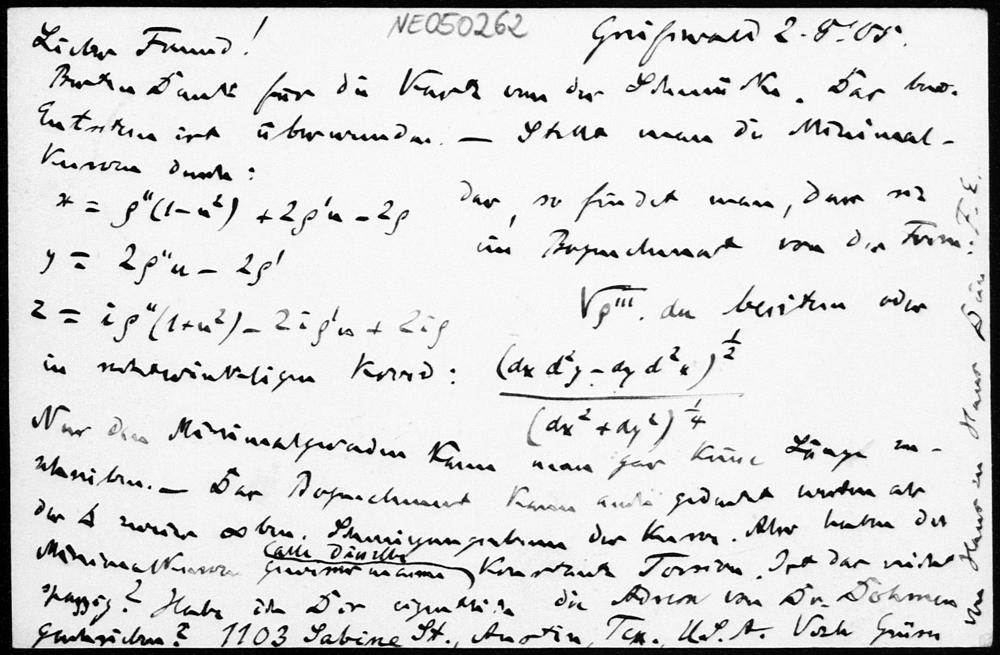 NE050262
Greifswald 2. 8. 05.
Lieber Freund!
Besten Dank für die Karte von der Schmücke. Das
Entsetzen ist überwunden. — Stellt man die Minimal-
kurven durch:
x = ρ''(1-u²) + 2ρ'u - 2ρ
y = 2ρ''u - 2ρ'
z = iρ''(1+u²) - 2iρ'u + 2iρ
dar, so findet man, dass sie
ein Bogenelement von der Form:
√ρ'''. du besitzen oder
in rechtwinkligen Koord: (dx d²y - dy d²x)^½ / (dx² + dy²)^¼
Nur den Minimalgeraden kann man gar keine Länge zu-
schreiben. — Das Bogenelement kann auch gedeutet werden als
der ∡ zweier ∞ ben. Schmiegungsebenen der Kurve. Also haben die
Minimalkurven gewissermassen (alle dieselbe) konstante Torsion. Ist das nicht
spassig? Habe ich Dir eigentlich die Adresse von Dr. Dohmen
geschrieben? 1103 Sabine St., Austin, Tex., U.S.A. Viele Grüsse
von Haus zu Haus Dein F. E.